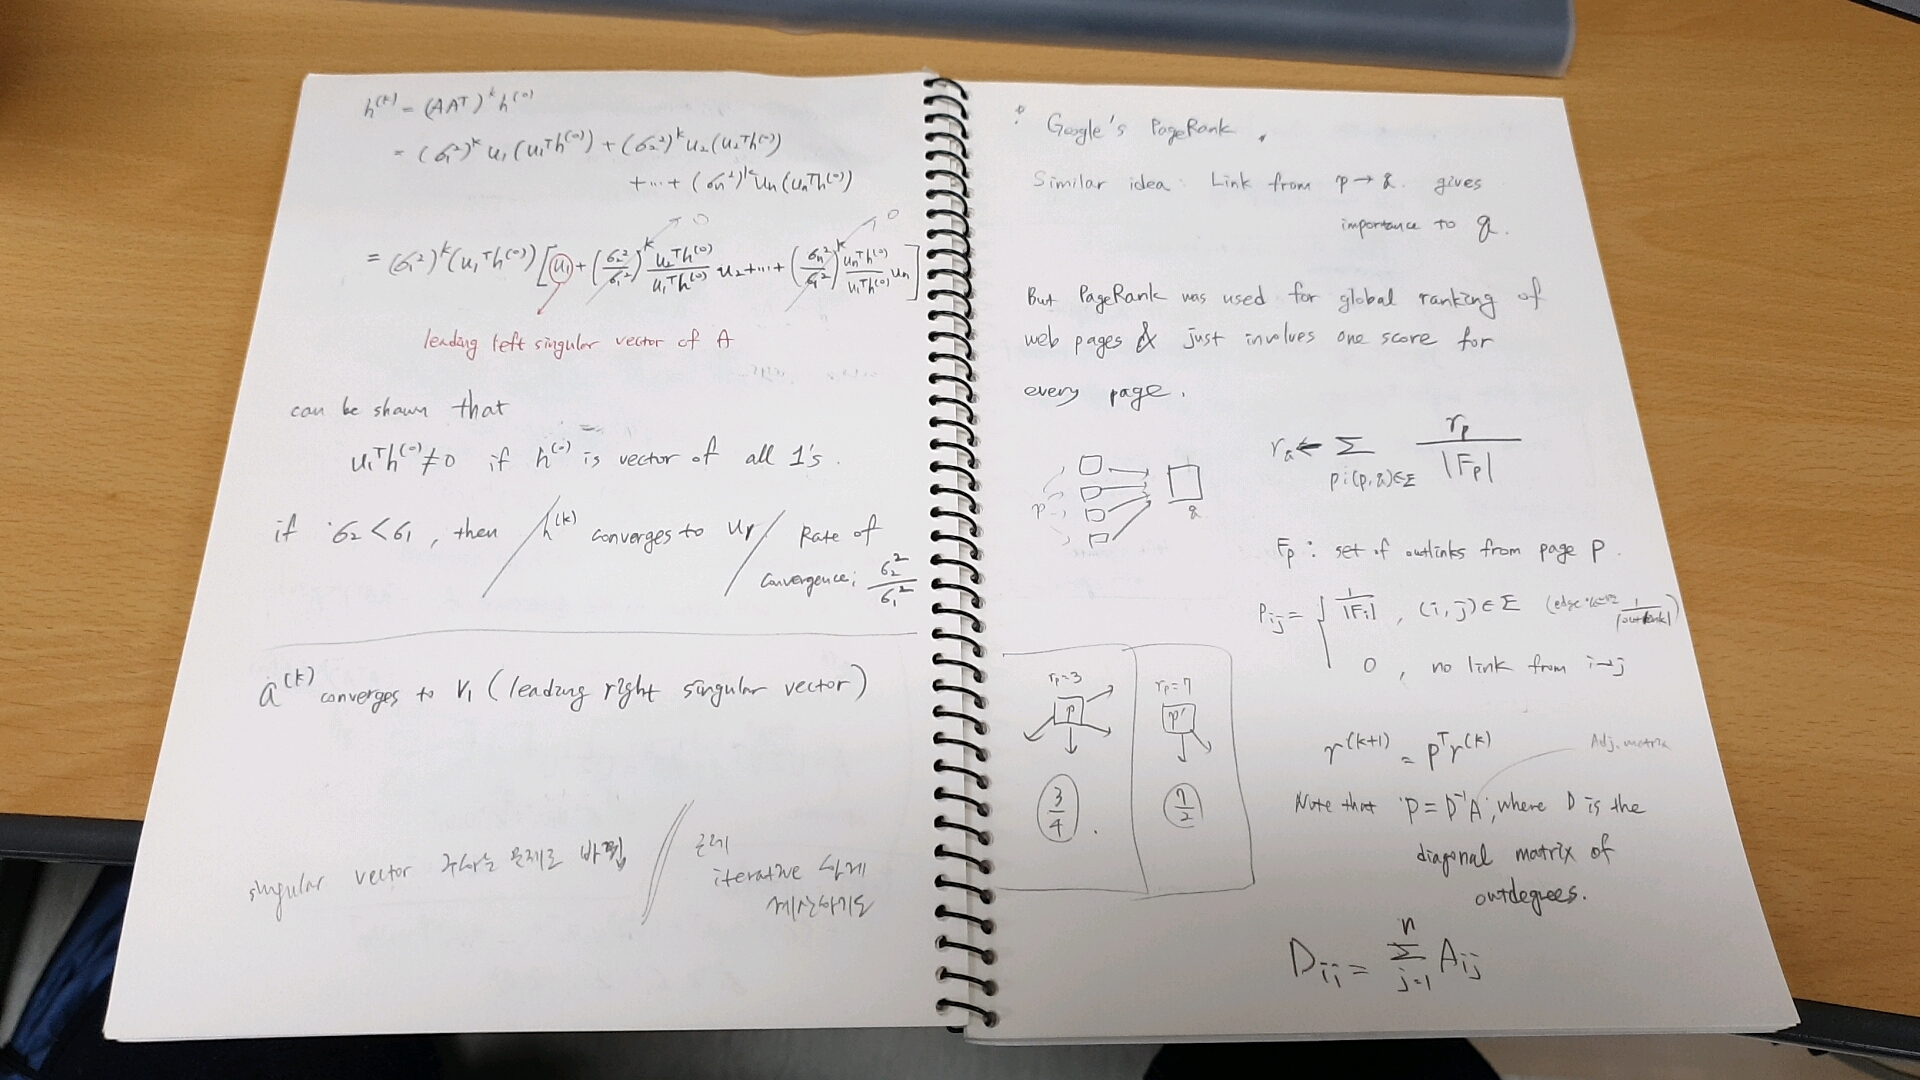 h^(k) = (AA^T)^k h^(0)
= (σ₁²)^k u₁(u₁^T h^(0)) + (σ₂²)^k u₂(u₂^T h^(0))
+ ... + (σn²)^k un(un^T h^(0))
= (σ₁²)^k (u₁^T h^(0)) [u₁ + (σ₂²/σ₁²)^k u₂^T h^(0)/u₁^T h^(0) u₂ + ... + (σn²/σ₁²)^k un^T h^(0)/u₁^T h^(0) un]
→ 0
→ 0
leading left singular vector of A
can be shown that
u₁^T h^(0) ≠ 0 if h^(0) is vector of all 1's.
if σ₂ < σ₁, then / h^(k) converges to u₁ / Rate of
convergence; σ₂²/σ₁²
a^(k) converges to v₁ (leading right singular vector)
singular vector 구하는 문제로 바뀜
근데
iterative 하게
계산하기도
Google's PageRank.
Similar idea: Link from p → q. gives
importance to q.
But PageRank was used for global ranking of
web pages & just involves one score for
every page.
p
q
rq ← Σ p:(p,q)∈Σ rp/|Fp|
Fp : set of outlinks from page p.
Pij = { 1/|Fi| , (i,j) ∈ Σ (edge 1/|outlink|)
0 , no link from i→j
rp=3
p
3/4 .
rp=7
p'
7/2
r^(k+1) = P^T r^(k)
Adj. matrix
Note that P = D⁻¹A, where D is the
diagonal matrix of
outdegrees.
Dii = Σ j=1 n Aij